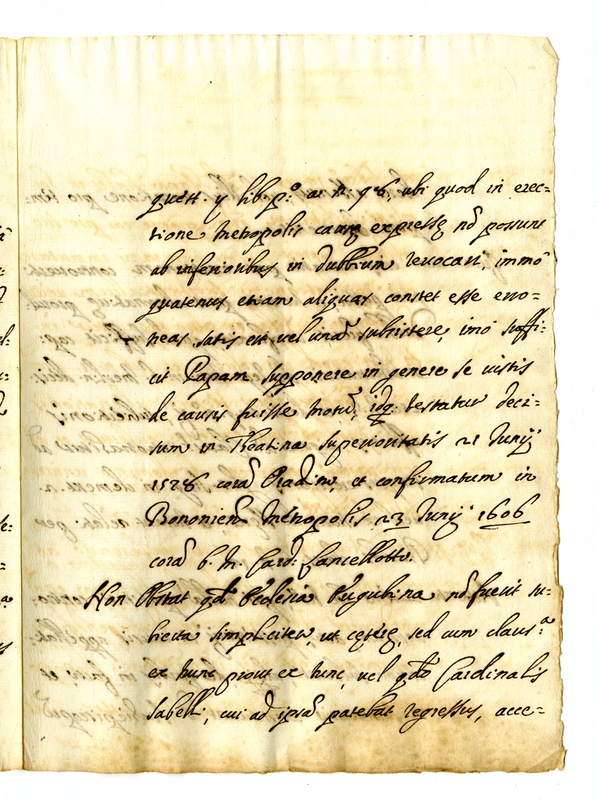 quæst. y lib. p.º ar. n. 98, ubi quod in erec=
tione Metropolis causę expressę nõ possunt
ab inferioribus in dubbium revocari, immo
quatenus etiam aliquas constet esse erro=
neas satis est vel unã subsistere, imò suffi=
cit Papam supponere in genere se iustis
de causis fuisse motũ, idq. testatur deci=
sum in Theatina superioritatis 21 Junij
corã et confirmatum in
Bononien Metropolis 23 Junij 1606
corã b. m. Card. Lancellotto.
Non Obstat qd Ecclesia Eugubina nõ fuerit su=
biecta simpliciter, ut cęterę, sed cum claus.ª
ex nunc prout ex tunc, vel qdo Cardinalis
Sabelli, cui ad ipsã patebat regressus, acce=